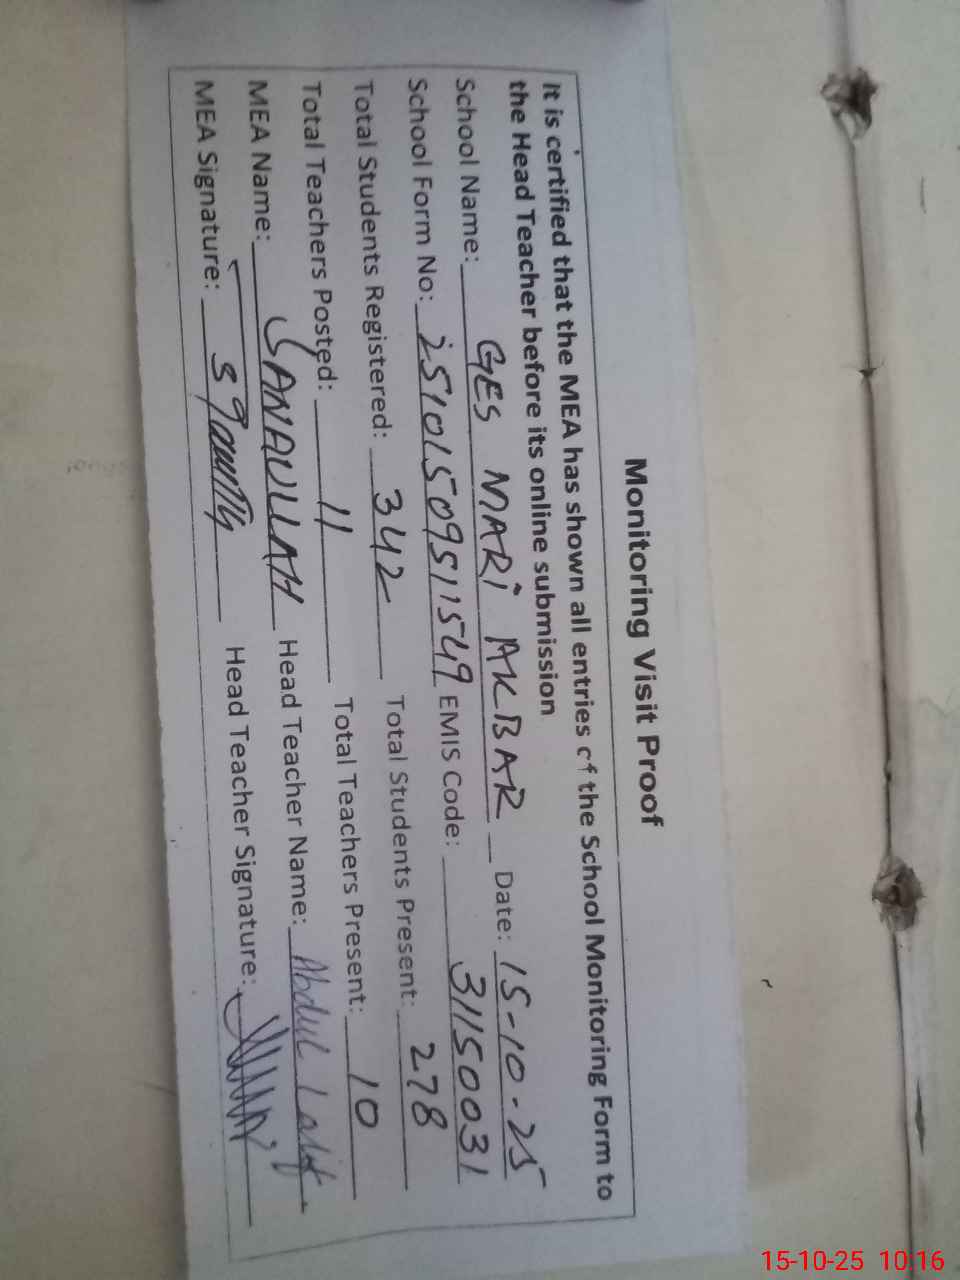 Monitoring Visit Proof
It is certified that the MEA has shown all entries of the School Monitoring Form to
the Head Teacher before its online submission
School Name: GES MARI AKBAR Date: 15-10-25
School Form No: 25101509511549 EMIS Code: 31150031
Total Students Registered: 342 Total Students Present: 278
Total Teachers Posted: 11 Total Teachers Present: 10
MEA Name: SANAULLAH Head Teacher Name: Abdul Latif
MEA Signature: Head Teacher Signature:
15-10-25 10:16